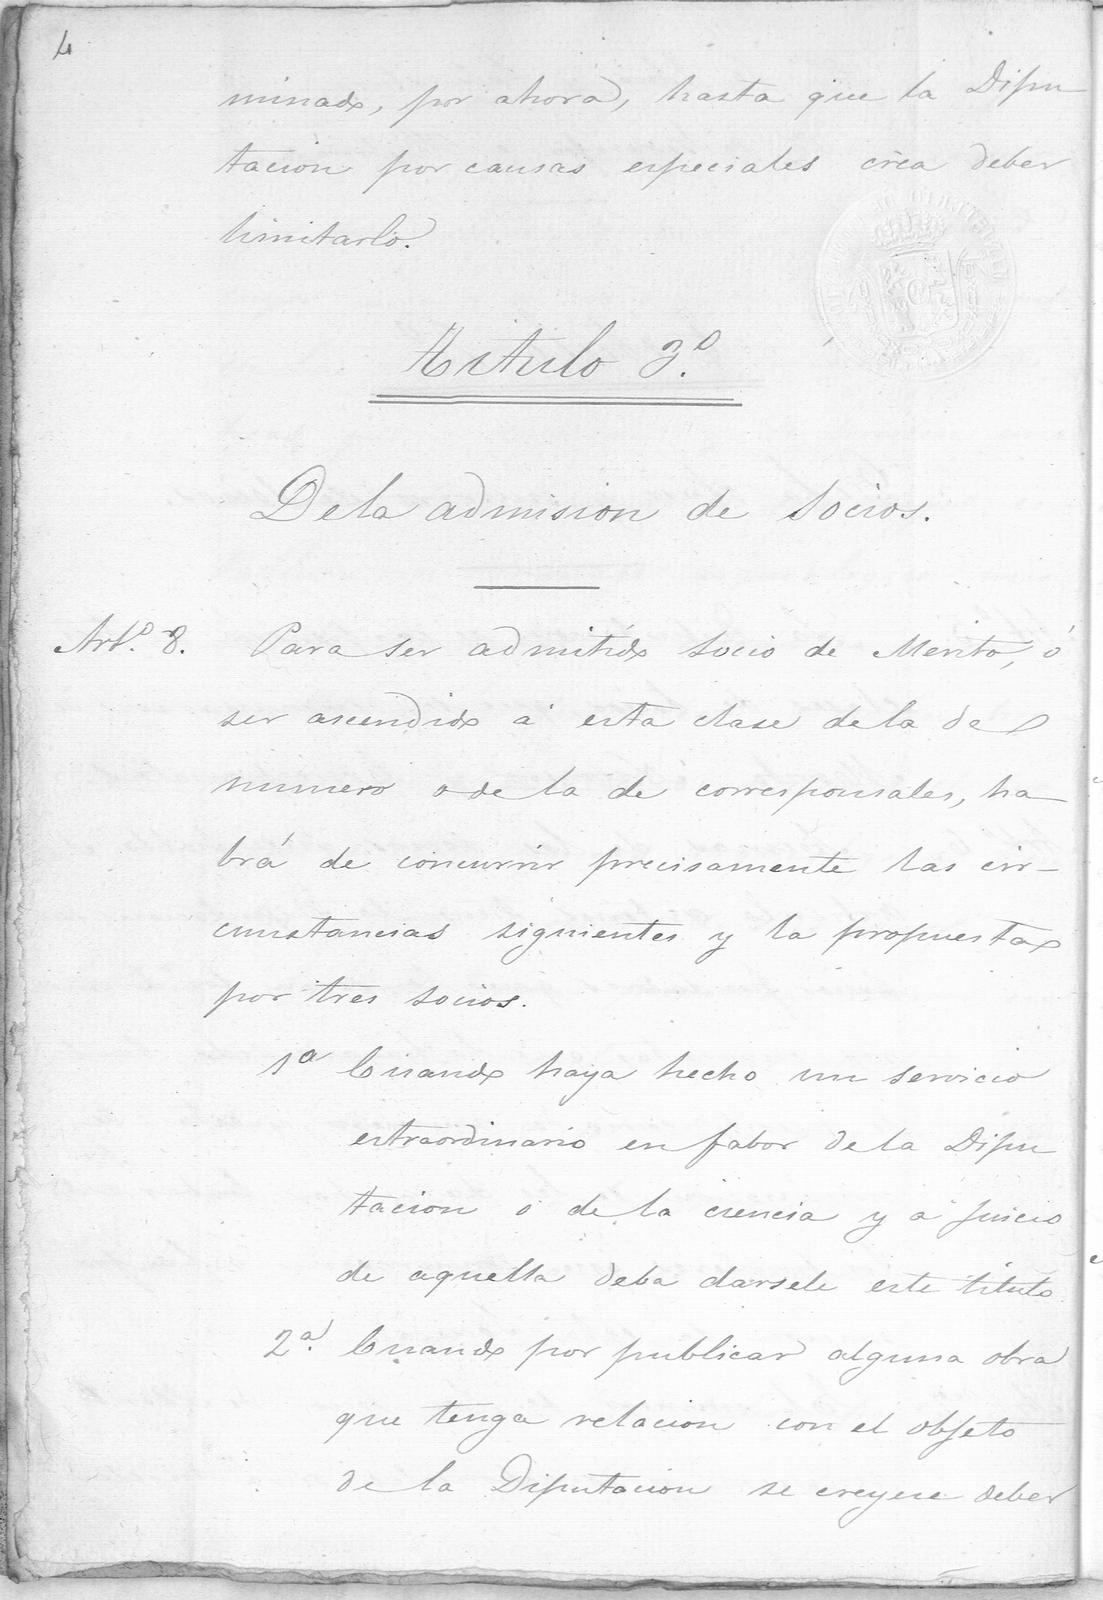 4
minado, por ahora, hasta que la Dipu
tacion por causas especiales crea deber
limitarlo.
Titulo 3.º
De la admision de Socios.
Artº. 8. Para ser admitido socio de Merito, ó
ser ascendido á esta clase de la de
numero o de la de corresponsales, ha-
brá de concurrir precisamente las cir-
cunstancias siguientes y la propuesta
por tres socios.
1ª Cuando haya hecho un servicio
estraordinario en fabor de la Dipu
tacion ó de la ciencia y á juicio
de aquella deba darsele este titulo
2ª. Cuando por publicar alguna obra
que tenga relacion con el objeto
de la Diputacion se creyese deber